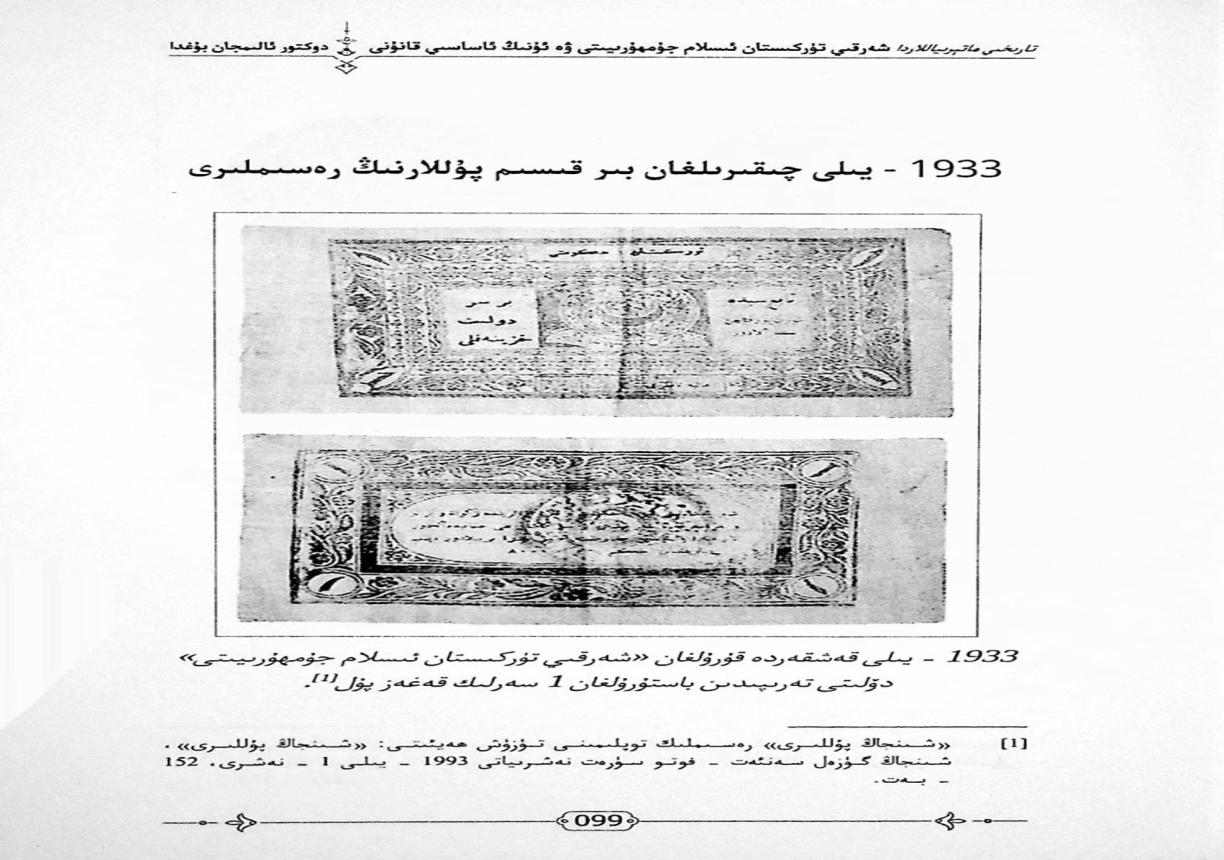 تارىخىي ماتېرىياللاردا شەرقىي تۈركىستان ئىسلام جۇمھۇرىيىتى ۋە ئۇنىڭ ئاساسىي قانۇنى دوكتور ئالىمجان بۇغدا
1933 - يىلى چىقىرىلغان بىر قىسىم پۇللارنىڭ رەسىملىرى
بر سر
دولت
خزينه‌فلى
1933 - يىلى قەشقەردە قۇرۇلغان «شەرقىي تۈركىستان ئىسلام جۇمھۇرىيىتى»
دۆلىتى تەرىپىدىن باستۇرۇلغان 1 سەرلىك قەغەز پۇل[1].
[1] «شىنجاڭ پۇللىرى» رەسىملىك توپلىمىنى تۈزۈش ھەيئىتى: «شىنجاڭ پۇللىرى»،
شىنجاڭ گۈزەل سەنئەت - فوتو سۈرەت نەشرىياتى 1993 - يىلى 1 - نەشرى، 152
- بەت.
099